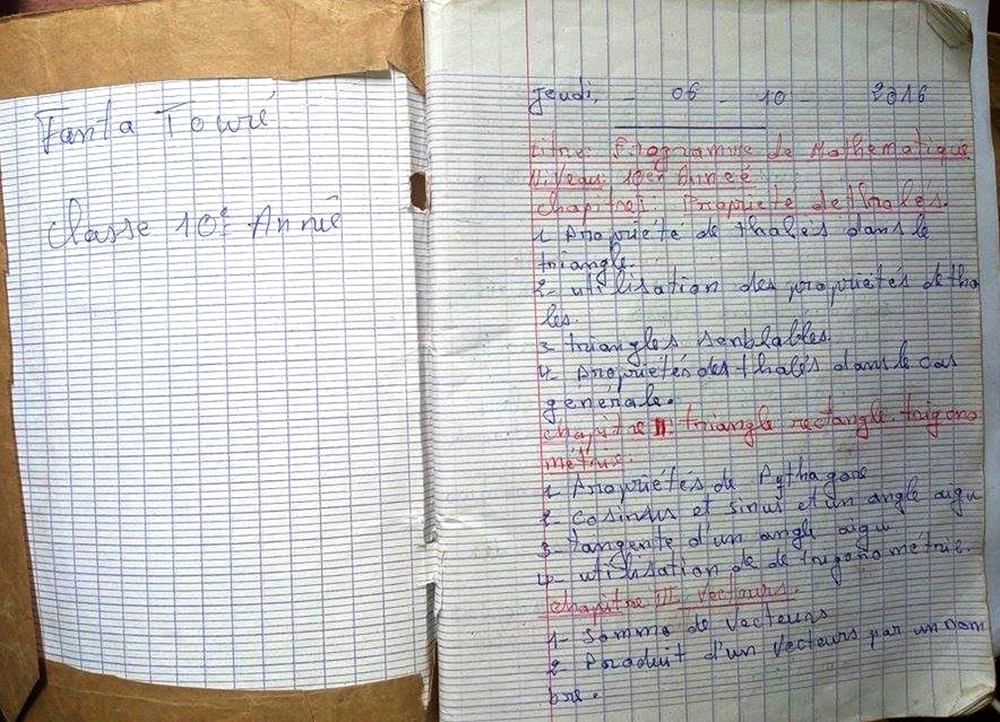 Fanta Touré
Classe 10e Année
Jeudi, - 06 - 10 - 2016
titre: Programme de Mathematique
Niveau: 10èn Année
chapitre I: Propriete de thalés.
1 Propriéte de thalés dans le
triangle.
2- utilisation des propriétés de tha
les.
3 triangles senblables
4- Propriétés des thalés dans le cas
genérale.
chapitre II: triangle rectangle. trigono
métrie.
1- Propriétés de Pythagore
2- Cosinus et sinus et un angle aigu
3- tangente d'un angle aigu
4- utilisation de de trigonométrie.
chapitre III vecteurs.
1- Somme de vecteurs
2- Produit d'un vecteurs par un nom
bre.